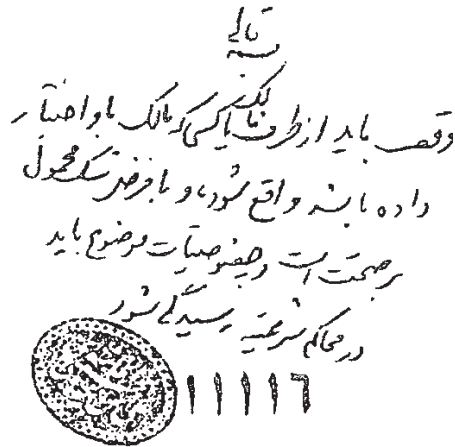 بسمه تعالی
وقف باید از طرف مالک یا کسی که مالک باو اختیار
داده باشد واقع شود، و با فرض شک محمول
بر صحت است و خصوصیات موضوع باید
در محاکم شرعیه رسیدگی شود
۱۱۱۱۶